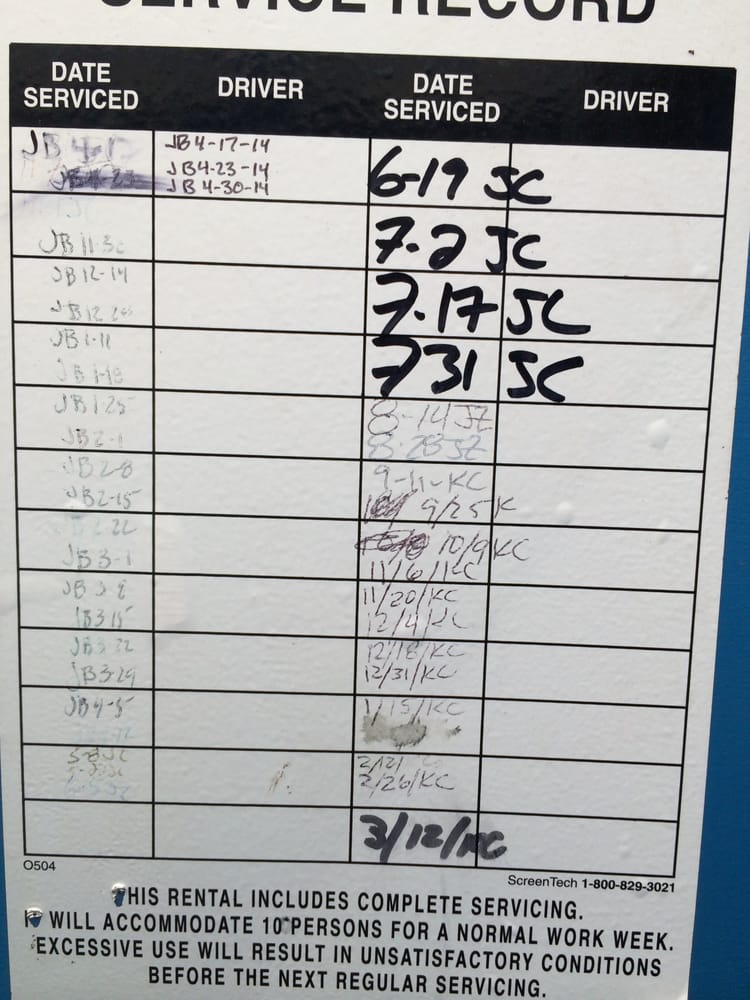 SERVICE RECORD
DATE SERVICED DRIVER DATE SERVICED DRIVER
JB 4-17-14
JB 4-23-14
JB 4-30-14
JB 11-30
JB 12-14
JB 1-11
JB 1-18
JB 1-25
JB 2-1
JB 2-8
JB 2-15
2-22
JB 3-1
JB 3-8
JB 3-15
JB 3-22
JB 3-29
JB 4-5
6-19 JC
7-2 JC
7-17 JC
731 JC
8-14 JZ
8-28 JZ
9-11-KC
9/25 K
10/9 KC
11/6/KC
11/20/KC
12/4/KC
12/18/KC
12/31/KC
1/15/KC
2/12/
2/26/KC
3/12/KC
O504
ScreenTech 1-800-829-3021
THIS RENTAL INCLUDES COMPLETE SERVICING.
IT WILL ACCOMMODATE 10 PERSONS FOR A NORMAL WORK WEEK.
EXCESSIVE USE WILL RESULT IN UNSATISFACTORY CONDITIONS
BEFORE THE NEXT REGULAR SERVICING.